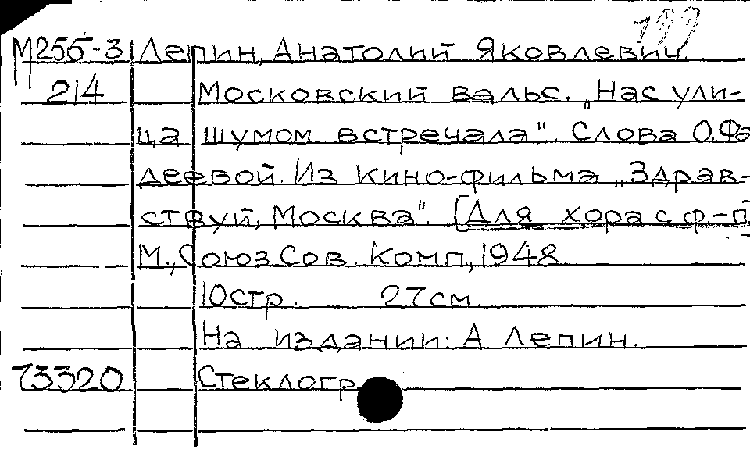 М255-3 Лепин, Анатолий Яковлевич.
214 Московский вальс. „Нас ули-
ца шумом встречала". Слова О.Фа
деевой. Из кино-фильма „Здрав-
ствуй, Москва". [Для хора с ф-п
М., Союз Сов. Комп., 1948
10стр. 27см.
На издании: А Лепин.
73320 Стеклогр.